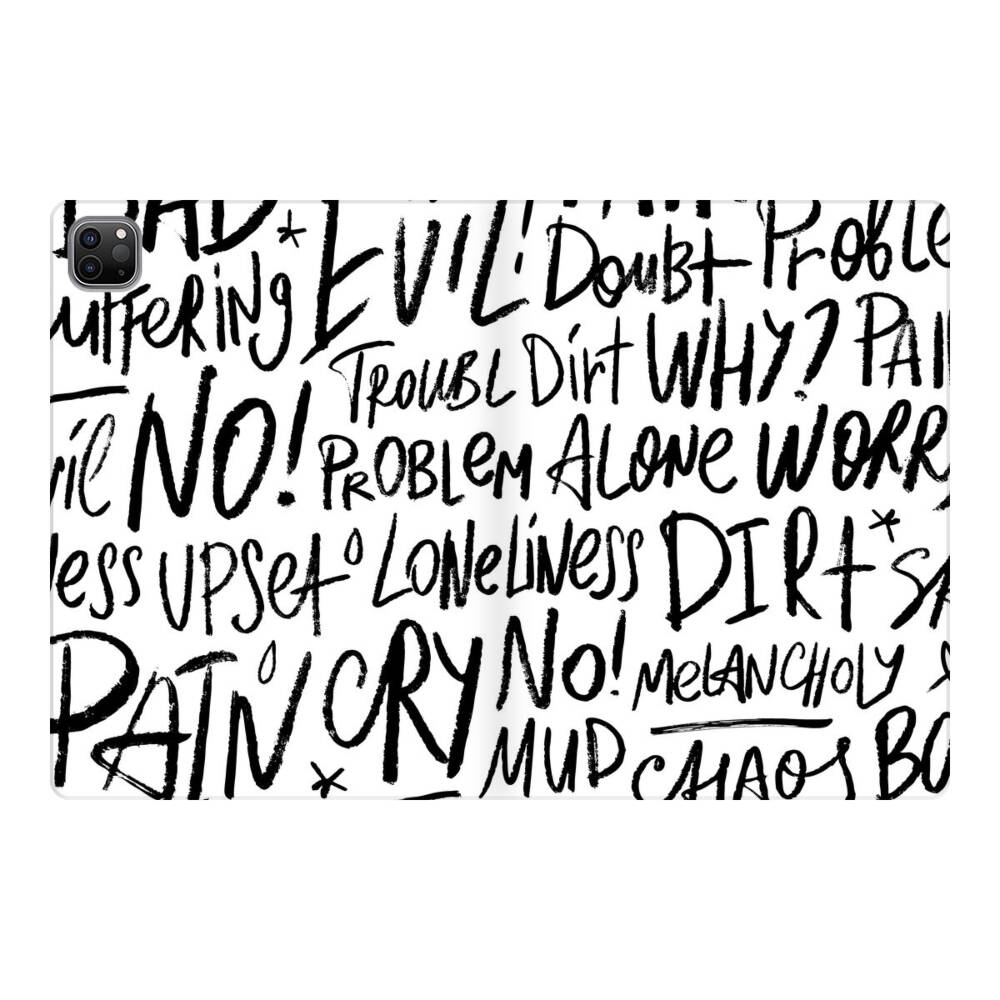 BAD* EVIL! PAIN
Doubt Proble
uffering
TROUBL Dirt WHY? PAI
vil NO! PROBLEM ALONE WORR
ess UPSET LONELINESS DIRT* SA
PAIN CRY NO! MELANCHOLY
* MUD CHAOS BO